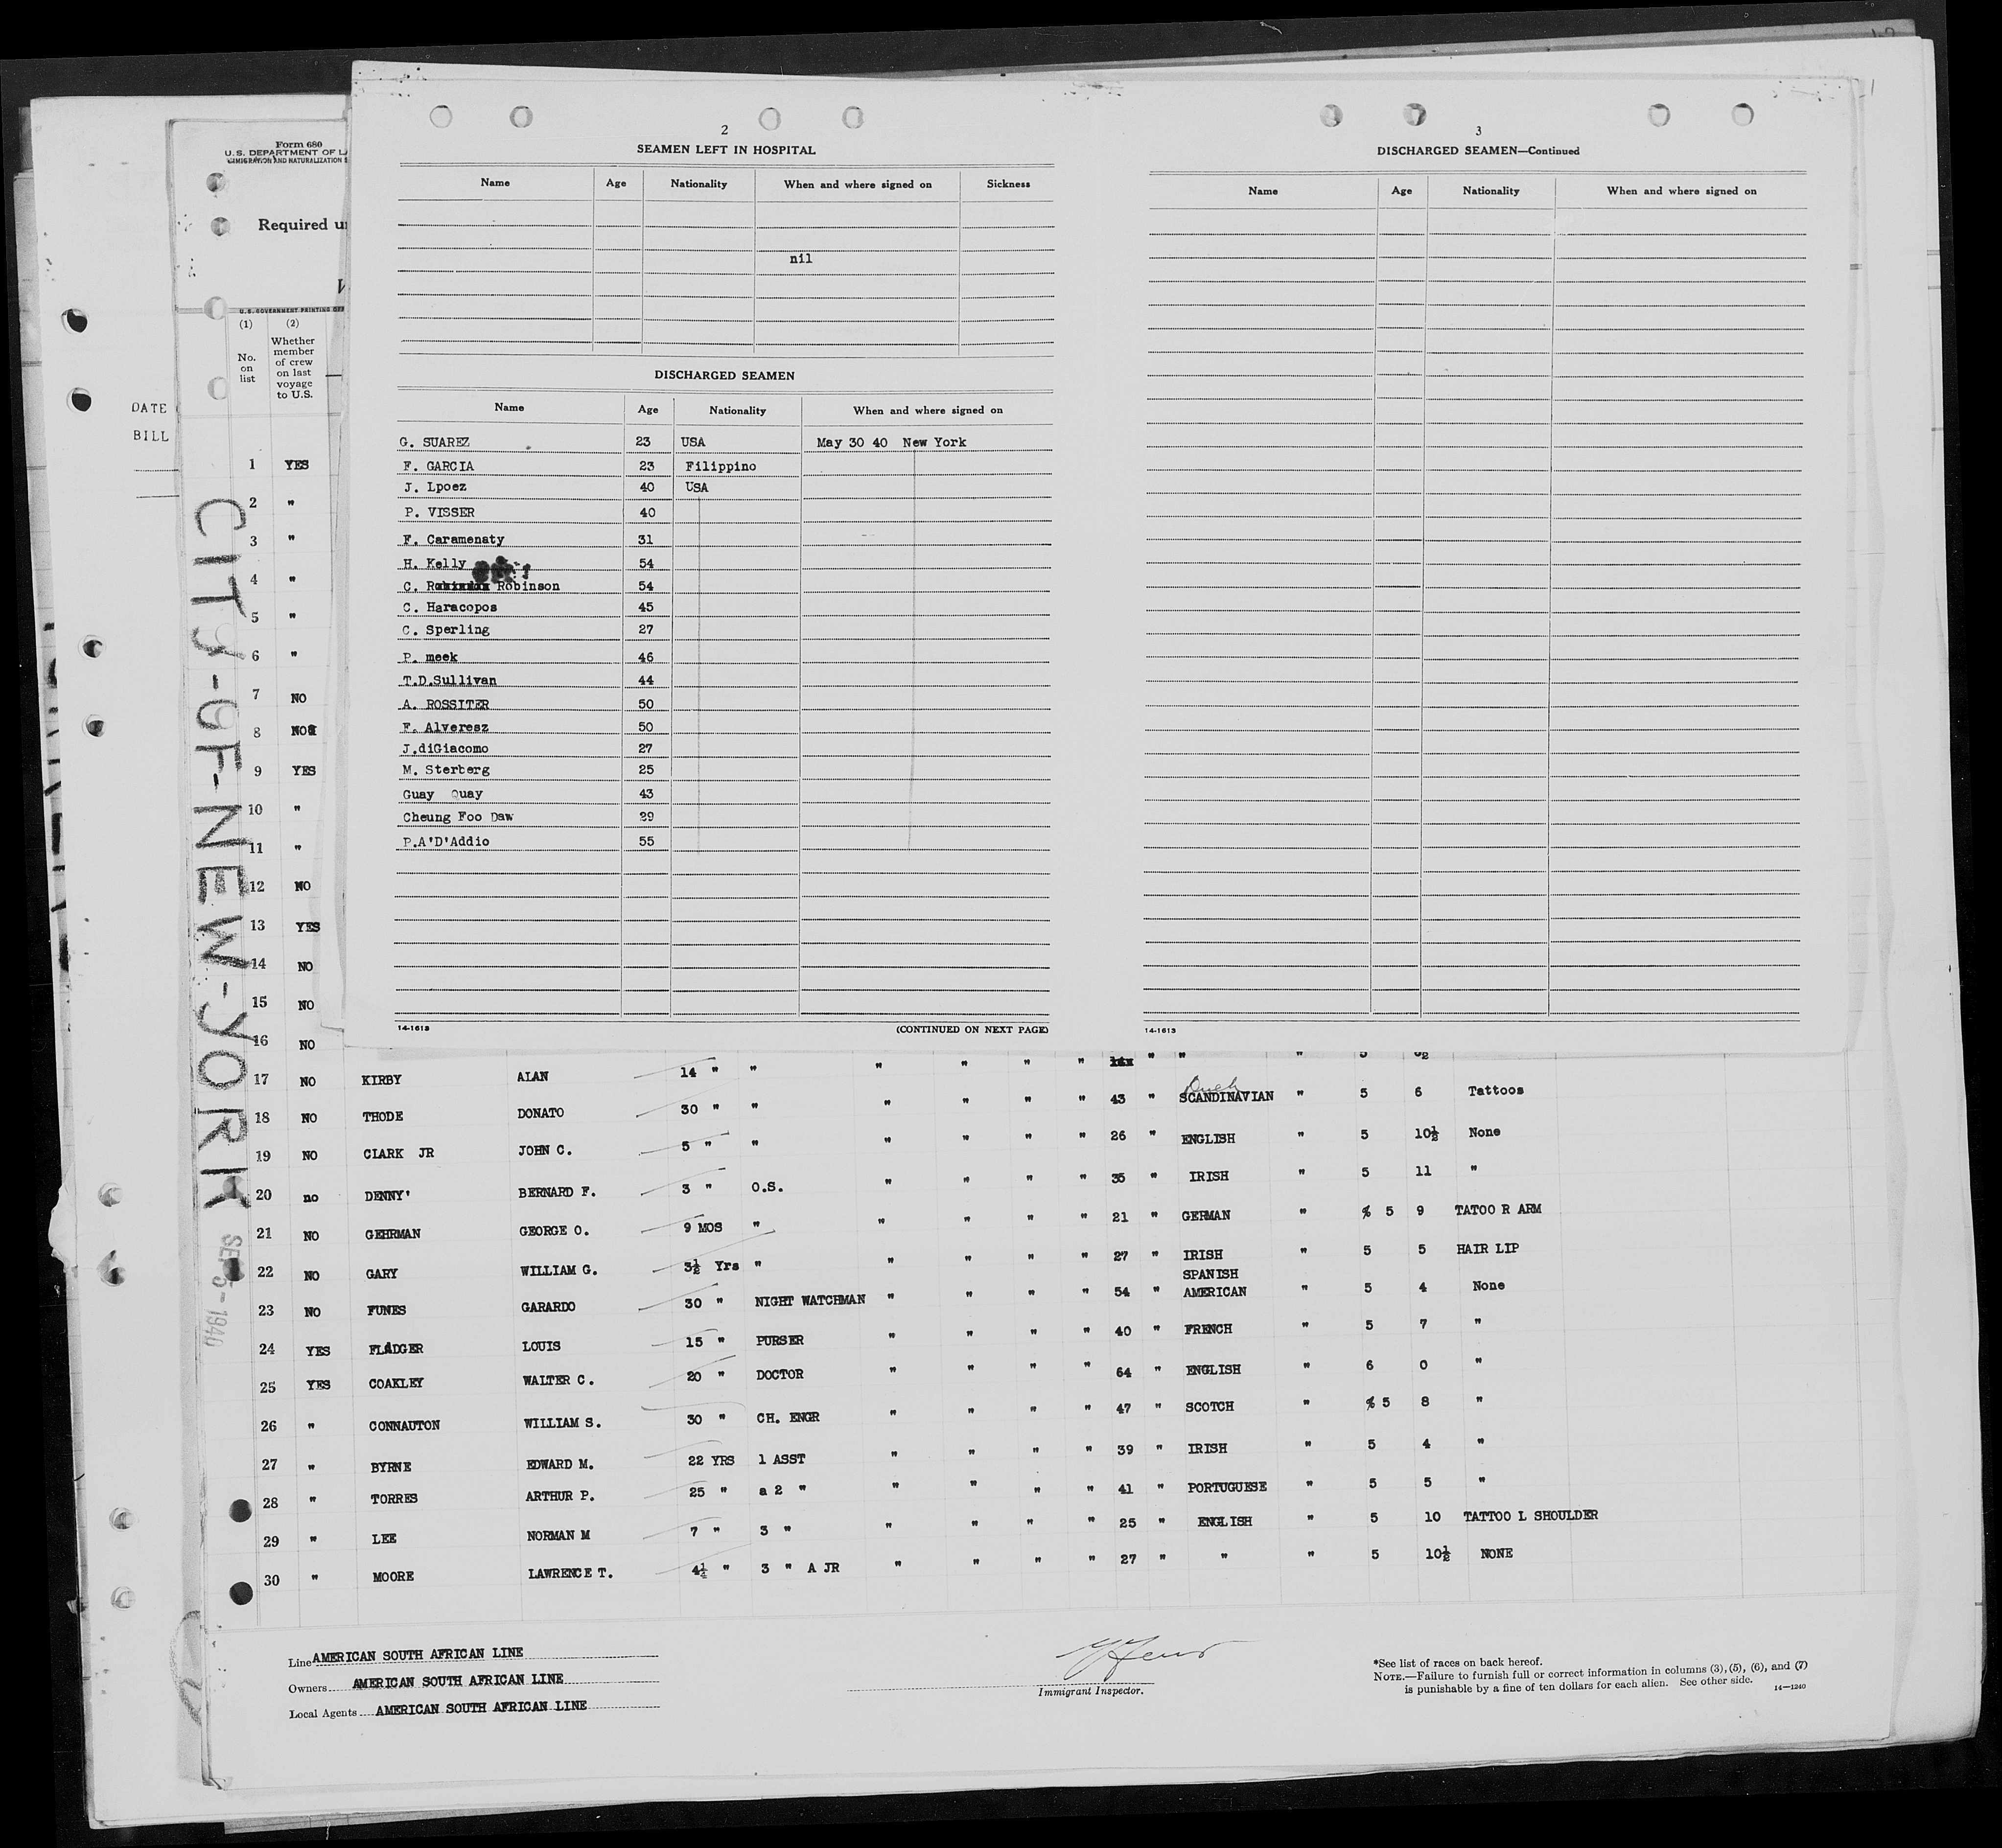 Form 680
U. S. DEPARTMENT OF L
IMMIGRATION AND NATURALIZATION S
Required u
U.S. GOVERNMENT PRINTING OFF
(1) (2)
No. on list
Whether member of crew on last voyage to U.S.
DATE
BILL
CITY-OF-NEW-YORK
SEP 5-1940
2
SEAMEN LEFT IN HOSPITAL
Name Age Nationality When and where signed on Sickness
nil
DISCHARGED SEAMEN
Name Age Nationality When and where signed on
G. SUAREZ 23 USA May 30 40 New York
F. GARCIA 23 Filippino
J. Lpoez 40 USA
P. VISSER 40
F. Caramenaty 31
H. Kelly 54
C. Robinson 54
C. Haracopos 45
C. Sperling 27
P. meek 46
T.D.Sullivan 44
A. ROSSITER 50
F. Alveresz 50
J.diGiacomo 27
M. Sterberg 25
Guay Quay 43
Cheung Foo Daw 29
P.A'D'Addio 55
14-1613 (CONTINUED ON NEXT PAGE)
3
DISCHARGED SEAMEN—Continued
Name Age Nationality When and where signed on
14-1613
1 YES
2 "
3 "
4 "
5 "
6 "
7 NO
8 NO
9 YES
10 "
11 "
12 NO
13 YES
14 NO
15 NO
16 NO
17 NO KIRBY ALAN 14 " " " " " " " "
Duch
18 NO THODE DONATO 30 " " " " " " 43 " SCANDINAVIAN " 5 6 Tattoos
19 NO CLARK JR JOHN C. 5 " " " " " 26 " ENGLISH " 5 10½ None
20 no DENNY' BERNARD F. 3 " O.S. " " " " 35 " IRISH " 5 11 "
21 NO GEHRMAN GEORGE O. 9 MOS " " " " " 21 " GERMAN " 5 9 TATOO R ARM
22 NO GARY WILLIAM G. 3½ Yrs " " " " " 27 " IRISH " 5 5 HAIR LIP
23 NO FUNES GARARDO 30 " NIGHT WATCHMAN " " " " 54 " SPANISH AMERICAN " 5 4 None
24 YES FLADGER LOUIS 15 " PURSER " " " " 40 " FRENCH " 5 7 "
25 YES COAKLEY WALTER C. 20 " DOCTOR " " " " 64 " ENGLISH " 6 0 "
26 " CONNAUTON WILLIAM S. 30 " CH. ENGR " " " " 47 " SCOTCH " 5 8 "
27 " BYRNE EDWARD M. 22 YRS 1 ASST " " " " 39 " IRISH " 5 4 "
28 " TORRES ARTHUR P. 25 " a 2 " " " " " 41 " PORTUGUESE " 5 5 "
29 " LEE NORMAN M 7 " 3 " " " " " 25 " ENGLISH " 5 10 TATTOO L SHOULDER
30 " MOORE LAWRENCE T. 4½ " 3 " A JR " " " " 27 " " " 5 10½ NONE
Line AMERICAN SOUTH AFRICAN LINE
Owners AMERICAN SOUTH AFRICAN LINE
Local Agents AMERICAN SOUTH AFRICAN LINE
Immigrant Inspector.
*See list of races on back hereof.
NOTE.—Failure to furnish full or correct information in columns (3), (5), (6), and (7)
is punishable by a fine of ten dollars for each alien. See other side.
14—1240